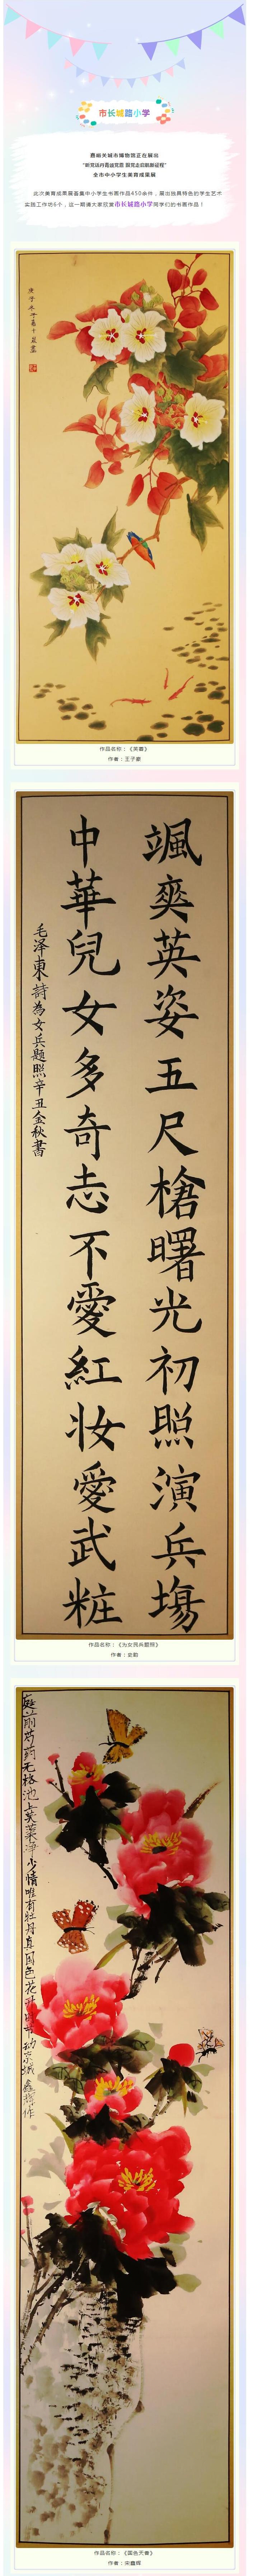 市长城路小学
嘉峪关城市博物馆正在展出
“听党话丹青颂党恩 跟党走启航新征程”
全市中小学生美育成果展
此次美育成果展荟集中小学生书画作品450余件，展出独具特色的学生艺术
实践工作坊6个，这一期请大家欣赏市长城路小学同学们的书画作品！
作品名称：《芙蓉》
颯爽英姿五尺槍曙光初照演兵場
中華兒女多奇志不愛紅妝愛武粧
毛泽東詩為女兵題照辛丑金秋書
作品名称：《为女民兵题照》
庭前芍药无格池上芙蕖净少情唯有牡丹真国色花
作品名称：《国色天香》
作者：朱鑫辉